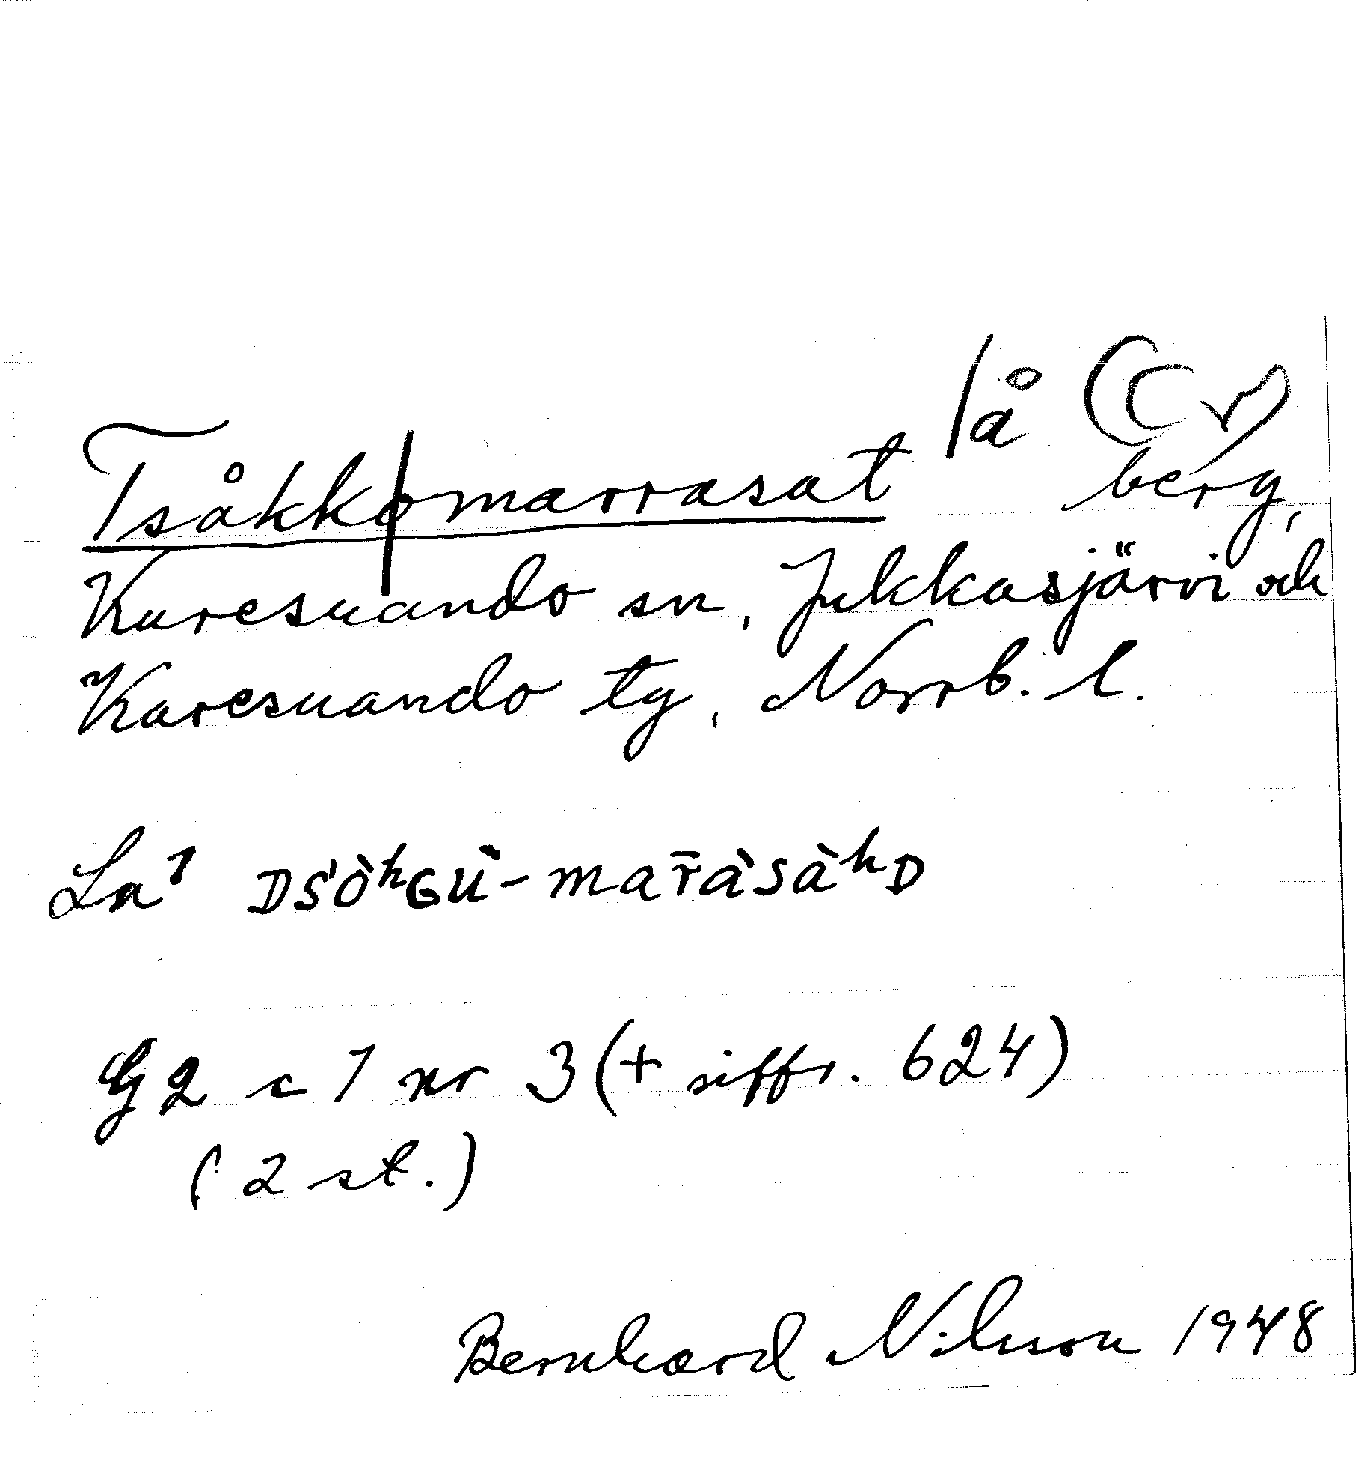 Tsåkkomarrasat /å berg,
Karesuando sn, Jukkasjärvi och
Karesuando tg, Norrb. l.
La¹ DS'ÒʰGÙ-mar̄àsàʰD
G2 c 1 nr 3 (+ siffr. 624)
(2 st.)
Bernhard Nilsson 1948